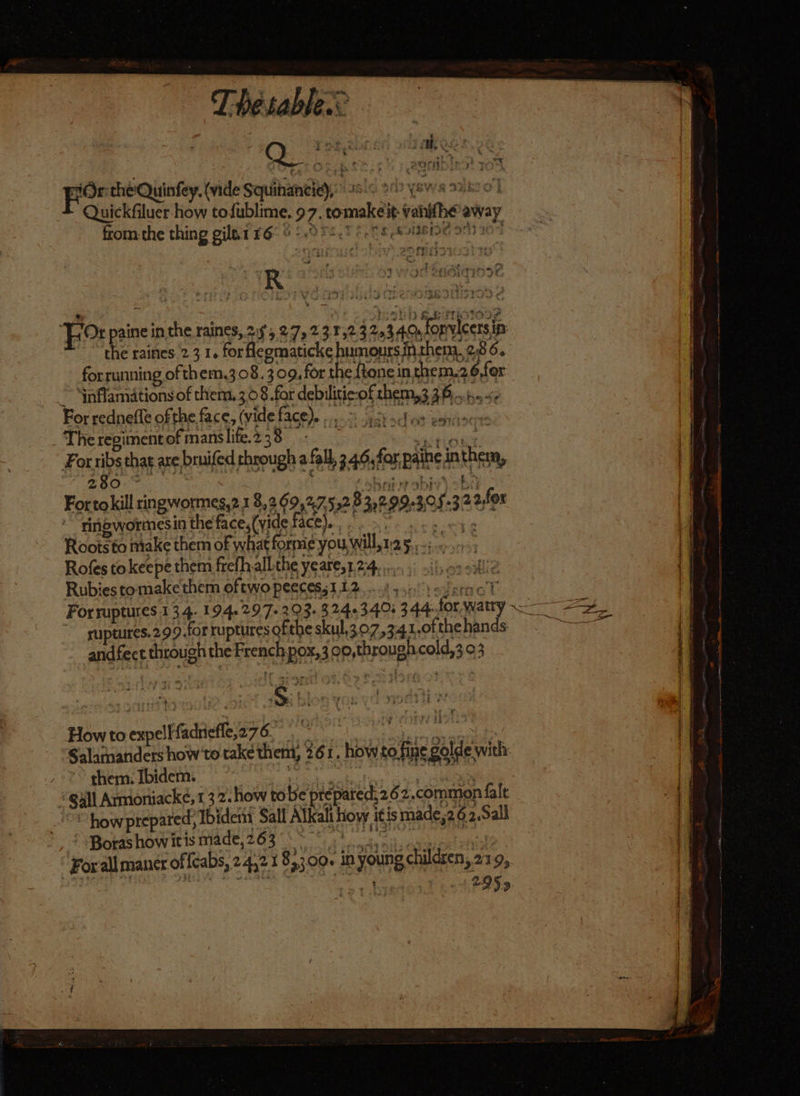 The table.
Q
FOr the Quinſey. (vide Squinancie),
Quickſiluer how to ſublime. 97. to make it vaniſhe away
from the thing gilt. 116
R
FOr paine in the raines, 25, 27, 231, 232, 340, for vlcers in
the raines 231. for flegmaticke humours in them. 286.
for running of them. 308. 309, for the ſtone in them. 26, for
inflamations of them. 308. for debilitie of them, 336.
For redneſſe of the face, (vide face).
The regiment of mans life. 238
For ribs that are bruiſed through a fall, 346, for paine in them,
280
For to kill ringwormes, 218, 269, 275, 283, 299, 305. 322, for
ringwormes in the face, (vide face).
Roots to make them of what forme you will, 125,
Roſes to keepe them freſh all the yeare, 124,
Rubies to make them of two peeces, 112
For ruptures 134. 194. 297. 203. 324. 340. 344. for watry
ruptures. 299. for ruptures of the skul, 307, 341. of the hands
and feet through the French pox, 300, through cold, 303
S
How to expell ſadneſſe, 276
Salamanders how to take them, 261, how to fine golde with
them. Ibidem.
Sall Armoniacke, 132. how to be prepared, 262. common ſalt
how prepared, Ibidem Sall Alkali how it is made, 262. Sall
Boras how it is made, 263
For all maner of ſcabs, 24, 218, 300. in young children, 219,
295,